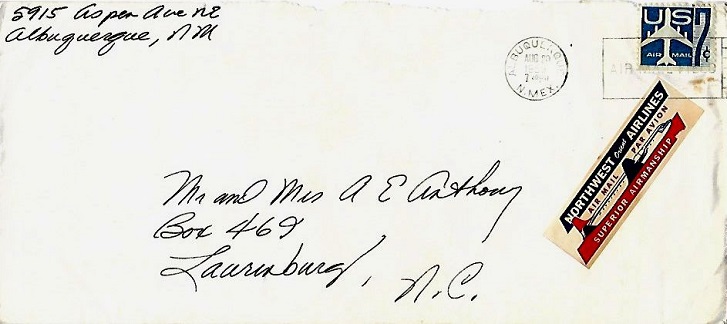 5915 Aspen Ave NE
Albuquerque, NM
ALBUQUERQUE
AUG 20
7 PM
N. MEX.
AIR MAIL
US 7¢
AIR MAIL
NORTHWEST Orient AIRLINES
AIR MAIL PAR AVION
SUPERIOR AIRMANSHIP
Mr and Mrs A E Anthony
Box 469
Laurinburg, N.C.